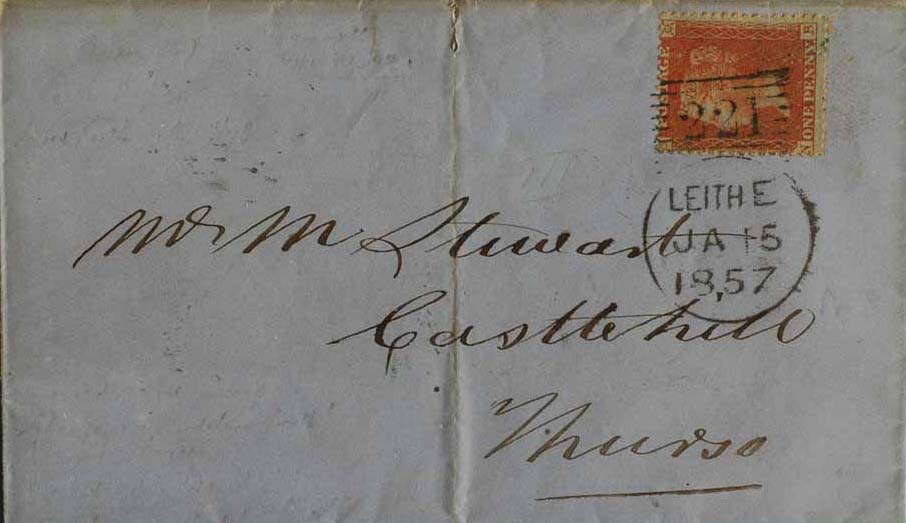 POSTAGE
ONE PENNY
E
N
221
LEITH E
JA 15
1857
Mr M Stewart
Castlehill
Thurso